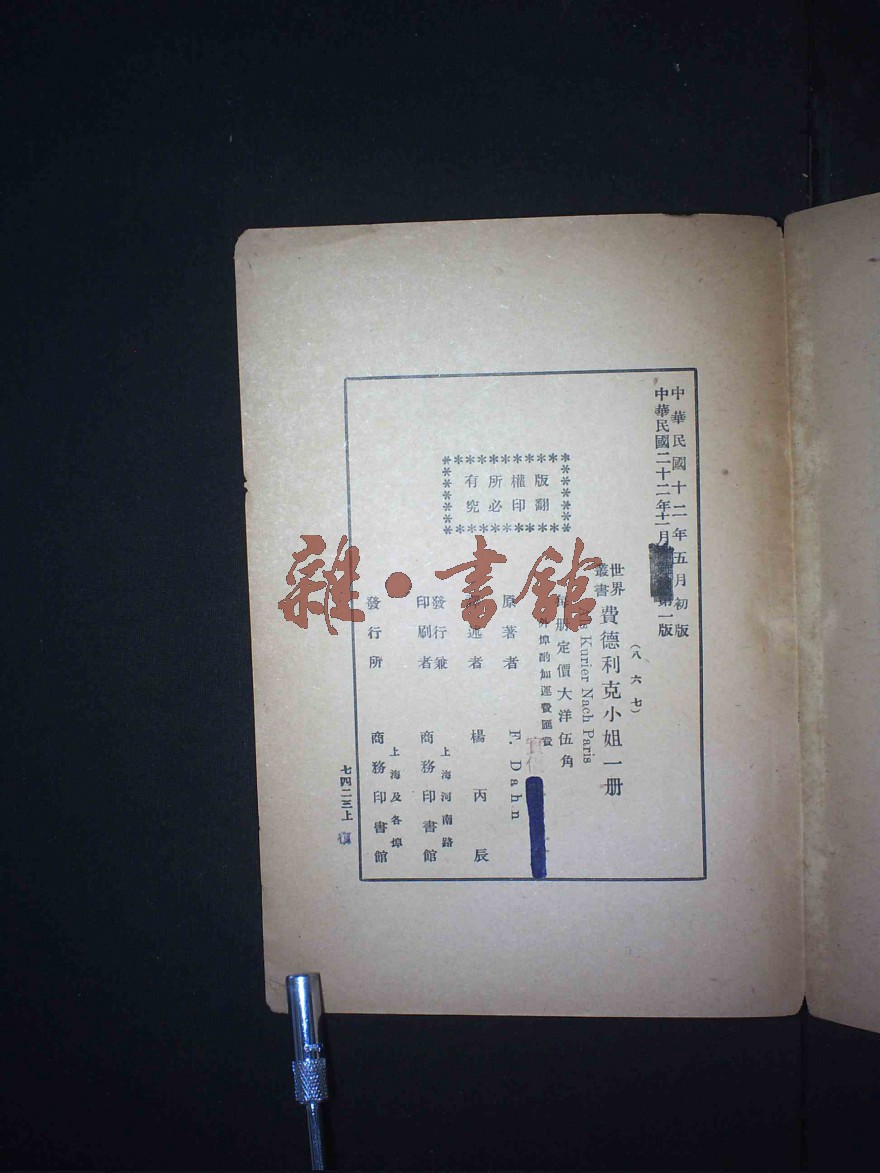 中華民國十二年五月初版
中華民國二十二年十一月 第一版
(八六七)
世界
叢書
費德利克小姐一册
Kurier Nach Paris
每册定價大洋伍角
外埠酌加運費匯費
版權所有
翻印必究
原著者 F. Dahn
述者 楊丙辰
發行兼
印刷者
上海河南路
商務印書館
發行所
上海及各埠
商務印書館
七四二三上
雜·書館